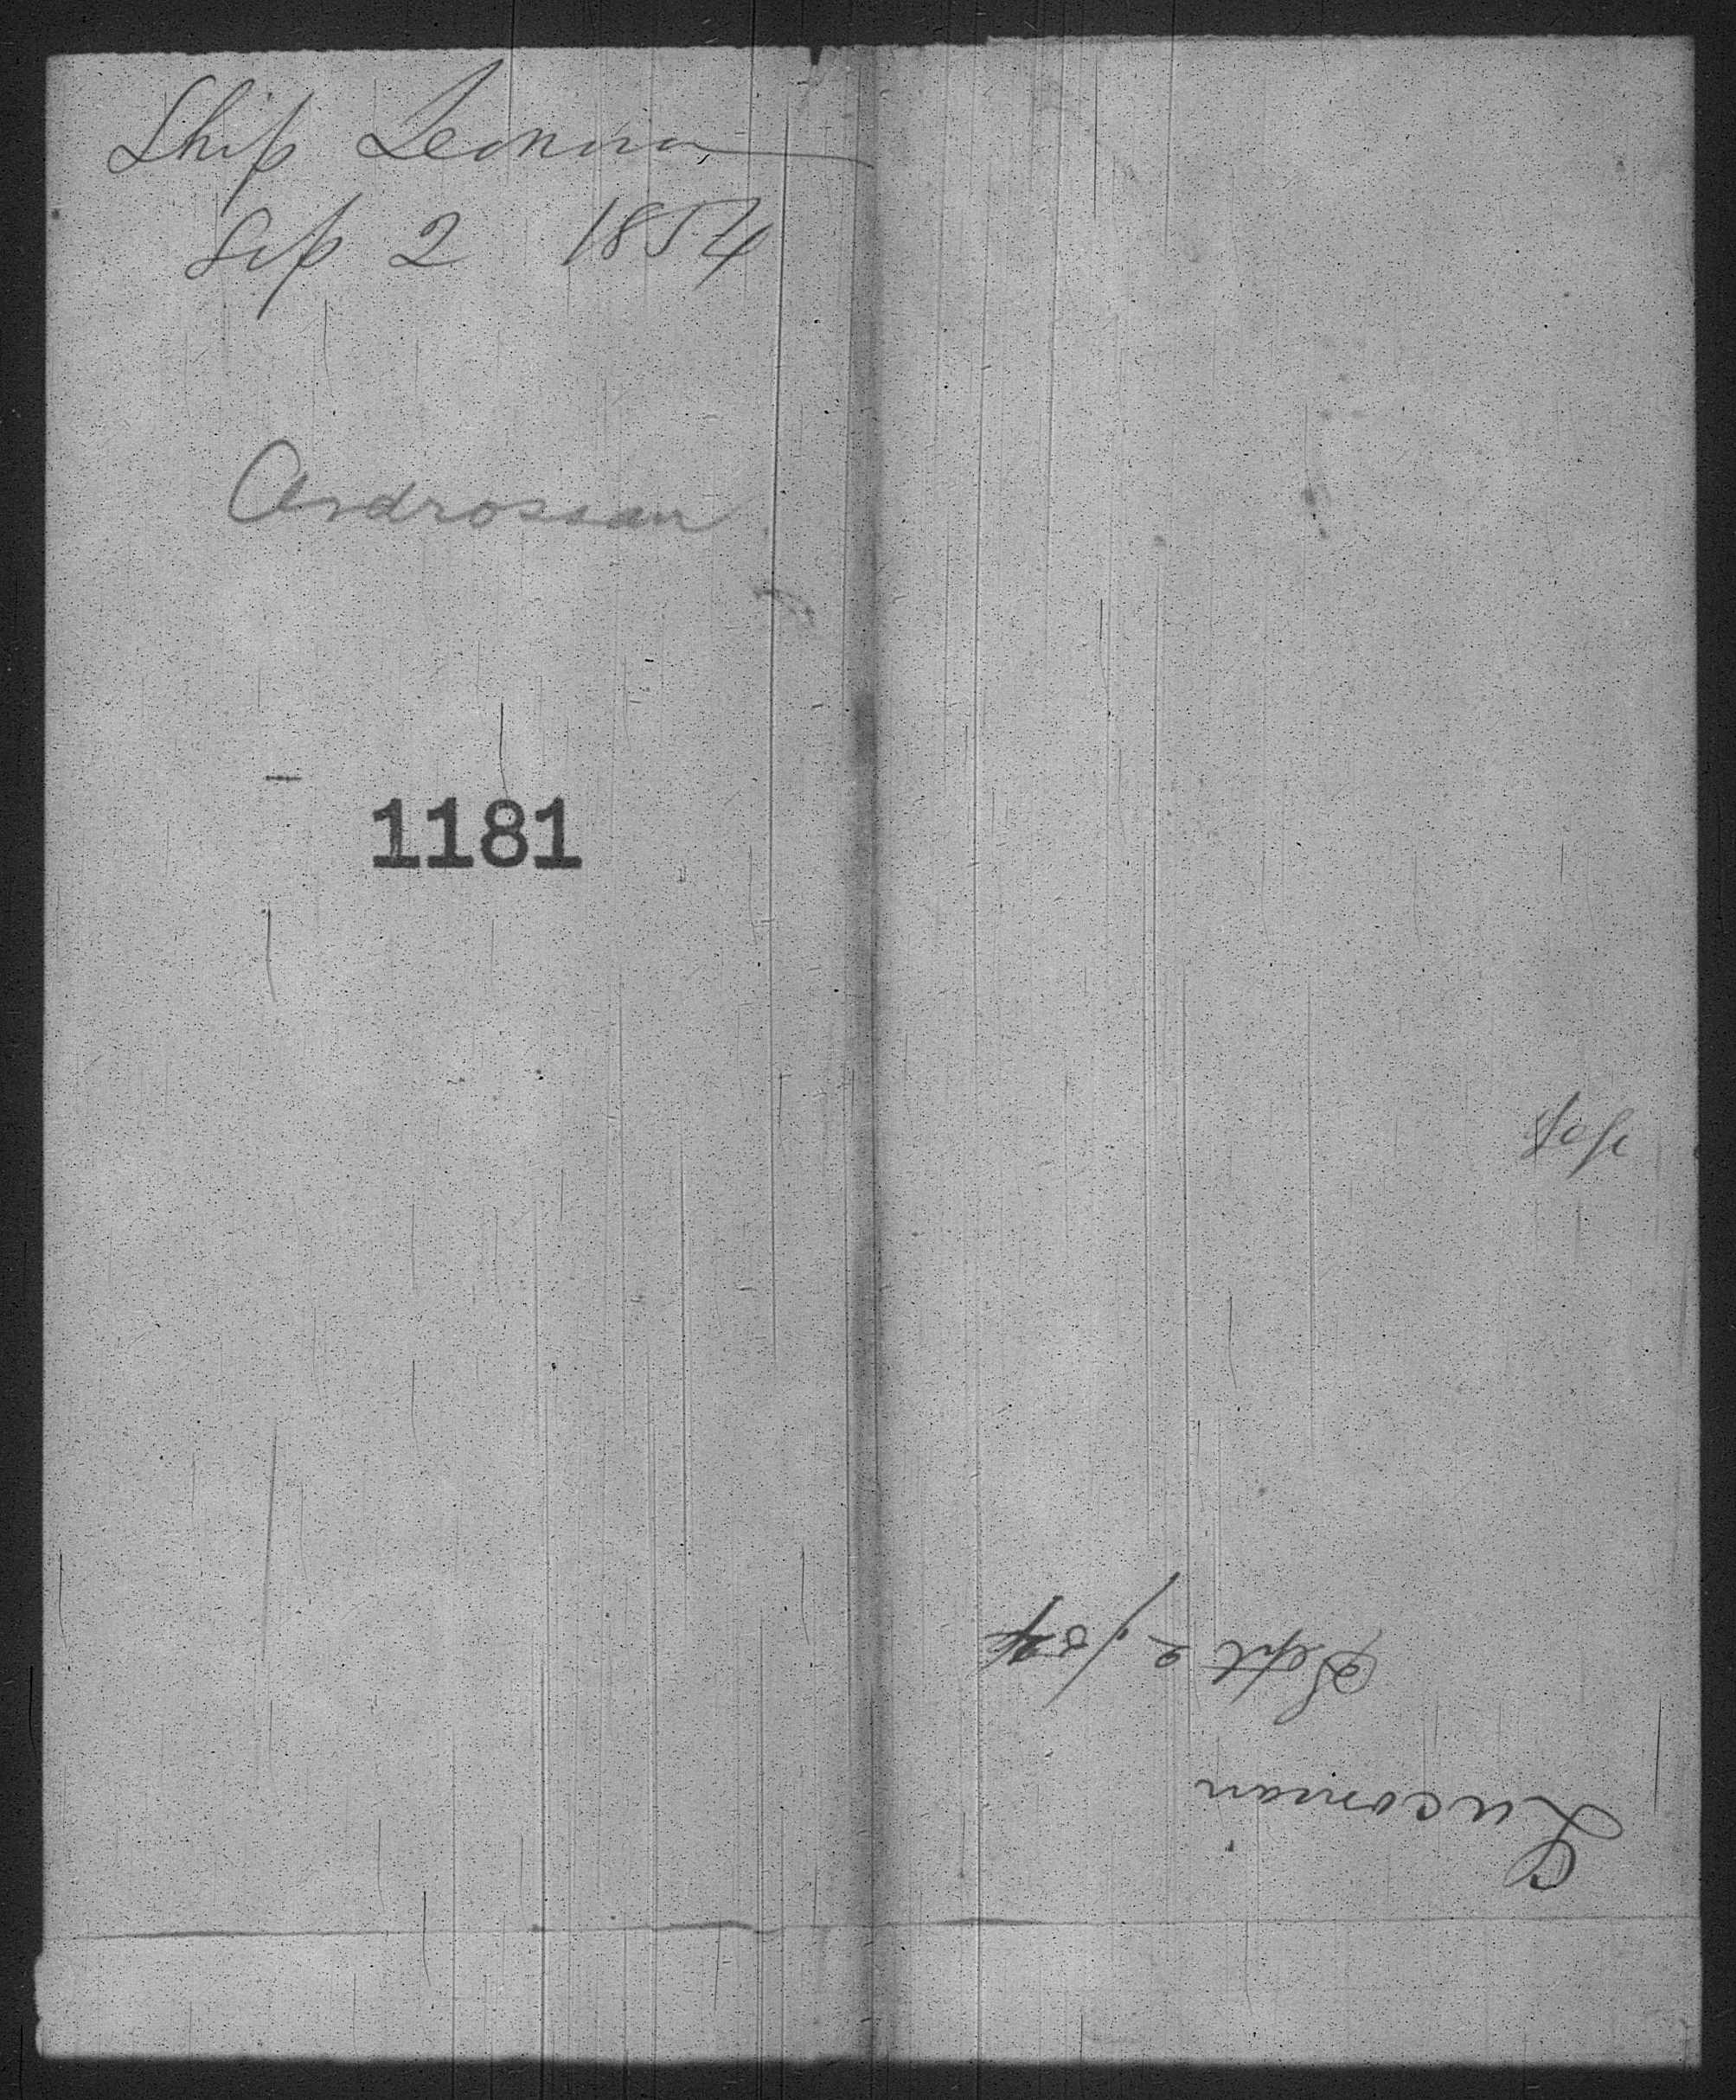 Ship Leonora
Sep 2 1854
Ardrossan
1181
Sept 2/54